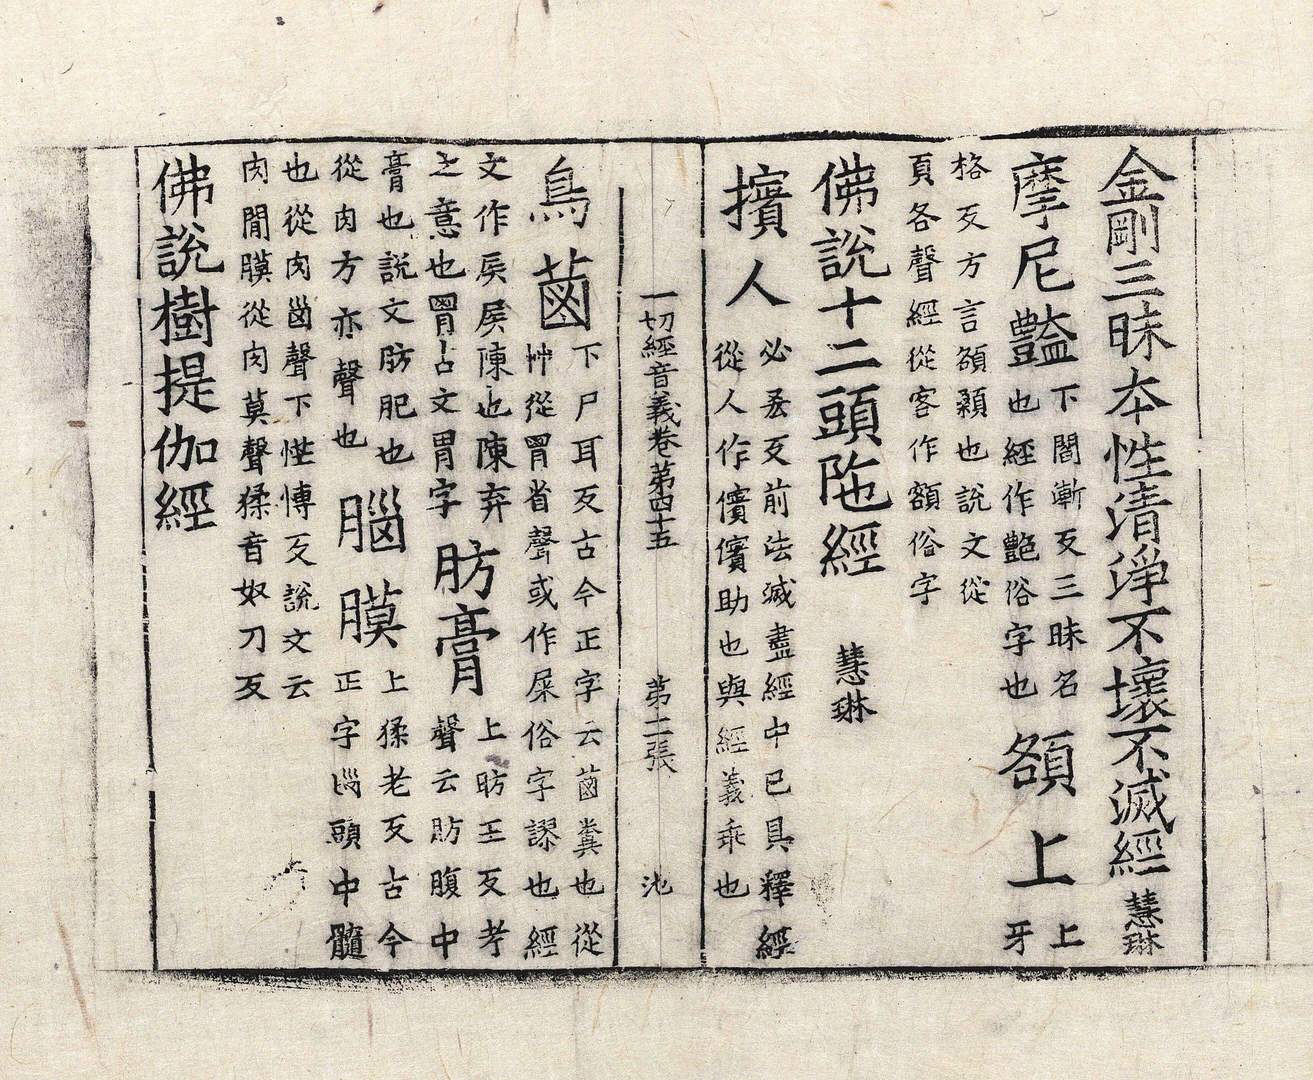 金剛三昧本性清淨不壞不滅經 慧琳
摩尼豔 下閻漸反三昧名
也經作艷俗字也 頟上 上
牙
格反方言頟顙也說文從
頁各聲經從客作額俗字
佛說十二頭陁經 慧琳
擯人 必刄反前法滅盡經中已具釋經
從人作儐儐助也與經義乖也
一切經音義卷第四十五 第二張 池
鳥𦳊 下尸耳反古今正字云𦳊糞也從
艸從胃省聲或作屎俗字謬也經
文作㞍㞍陳也陳弃
之意也𦞅古文胃字 肪膏 上昉王反考
聲云肪腹中
膏也說文肪肥也
從肉方亦聲也 腦膜 上猱老反古今
正字𡿺頭中髓
也從肉𡿺聲下忙愽反說文云
肉閒膜從肉莫聲猱音奴刀反
佛說樹提伽經